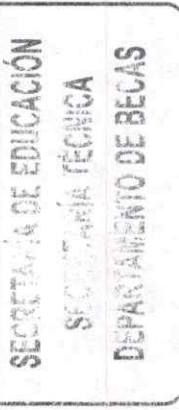 SECRETARÍA DE EDUCACIÓN
SECRETARÍA TÉCNICA
DEPARTAMENTO DE BECAS